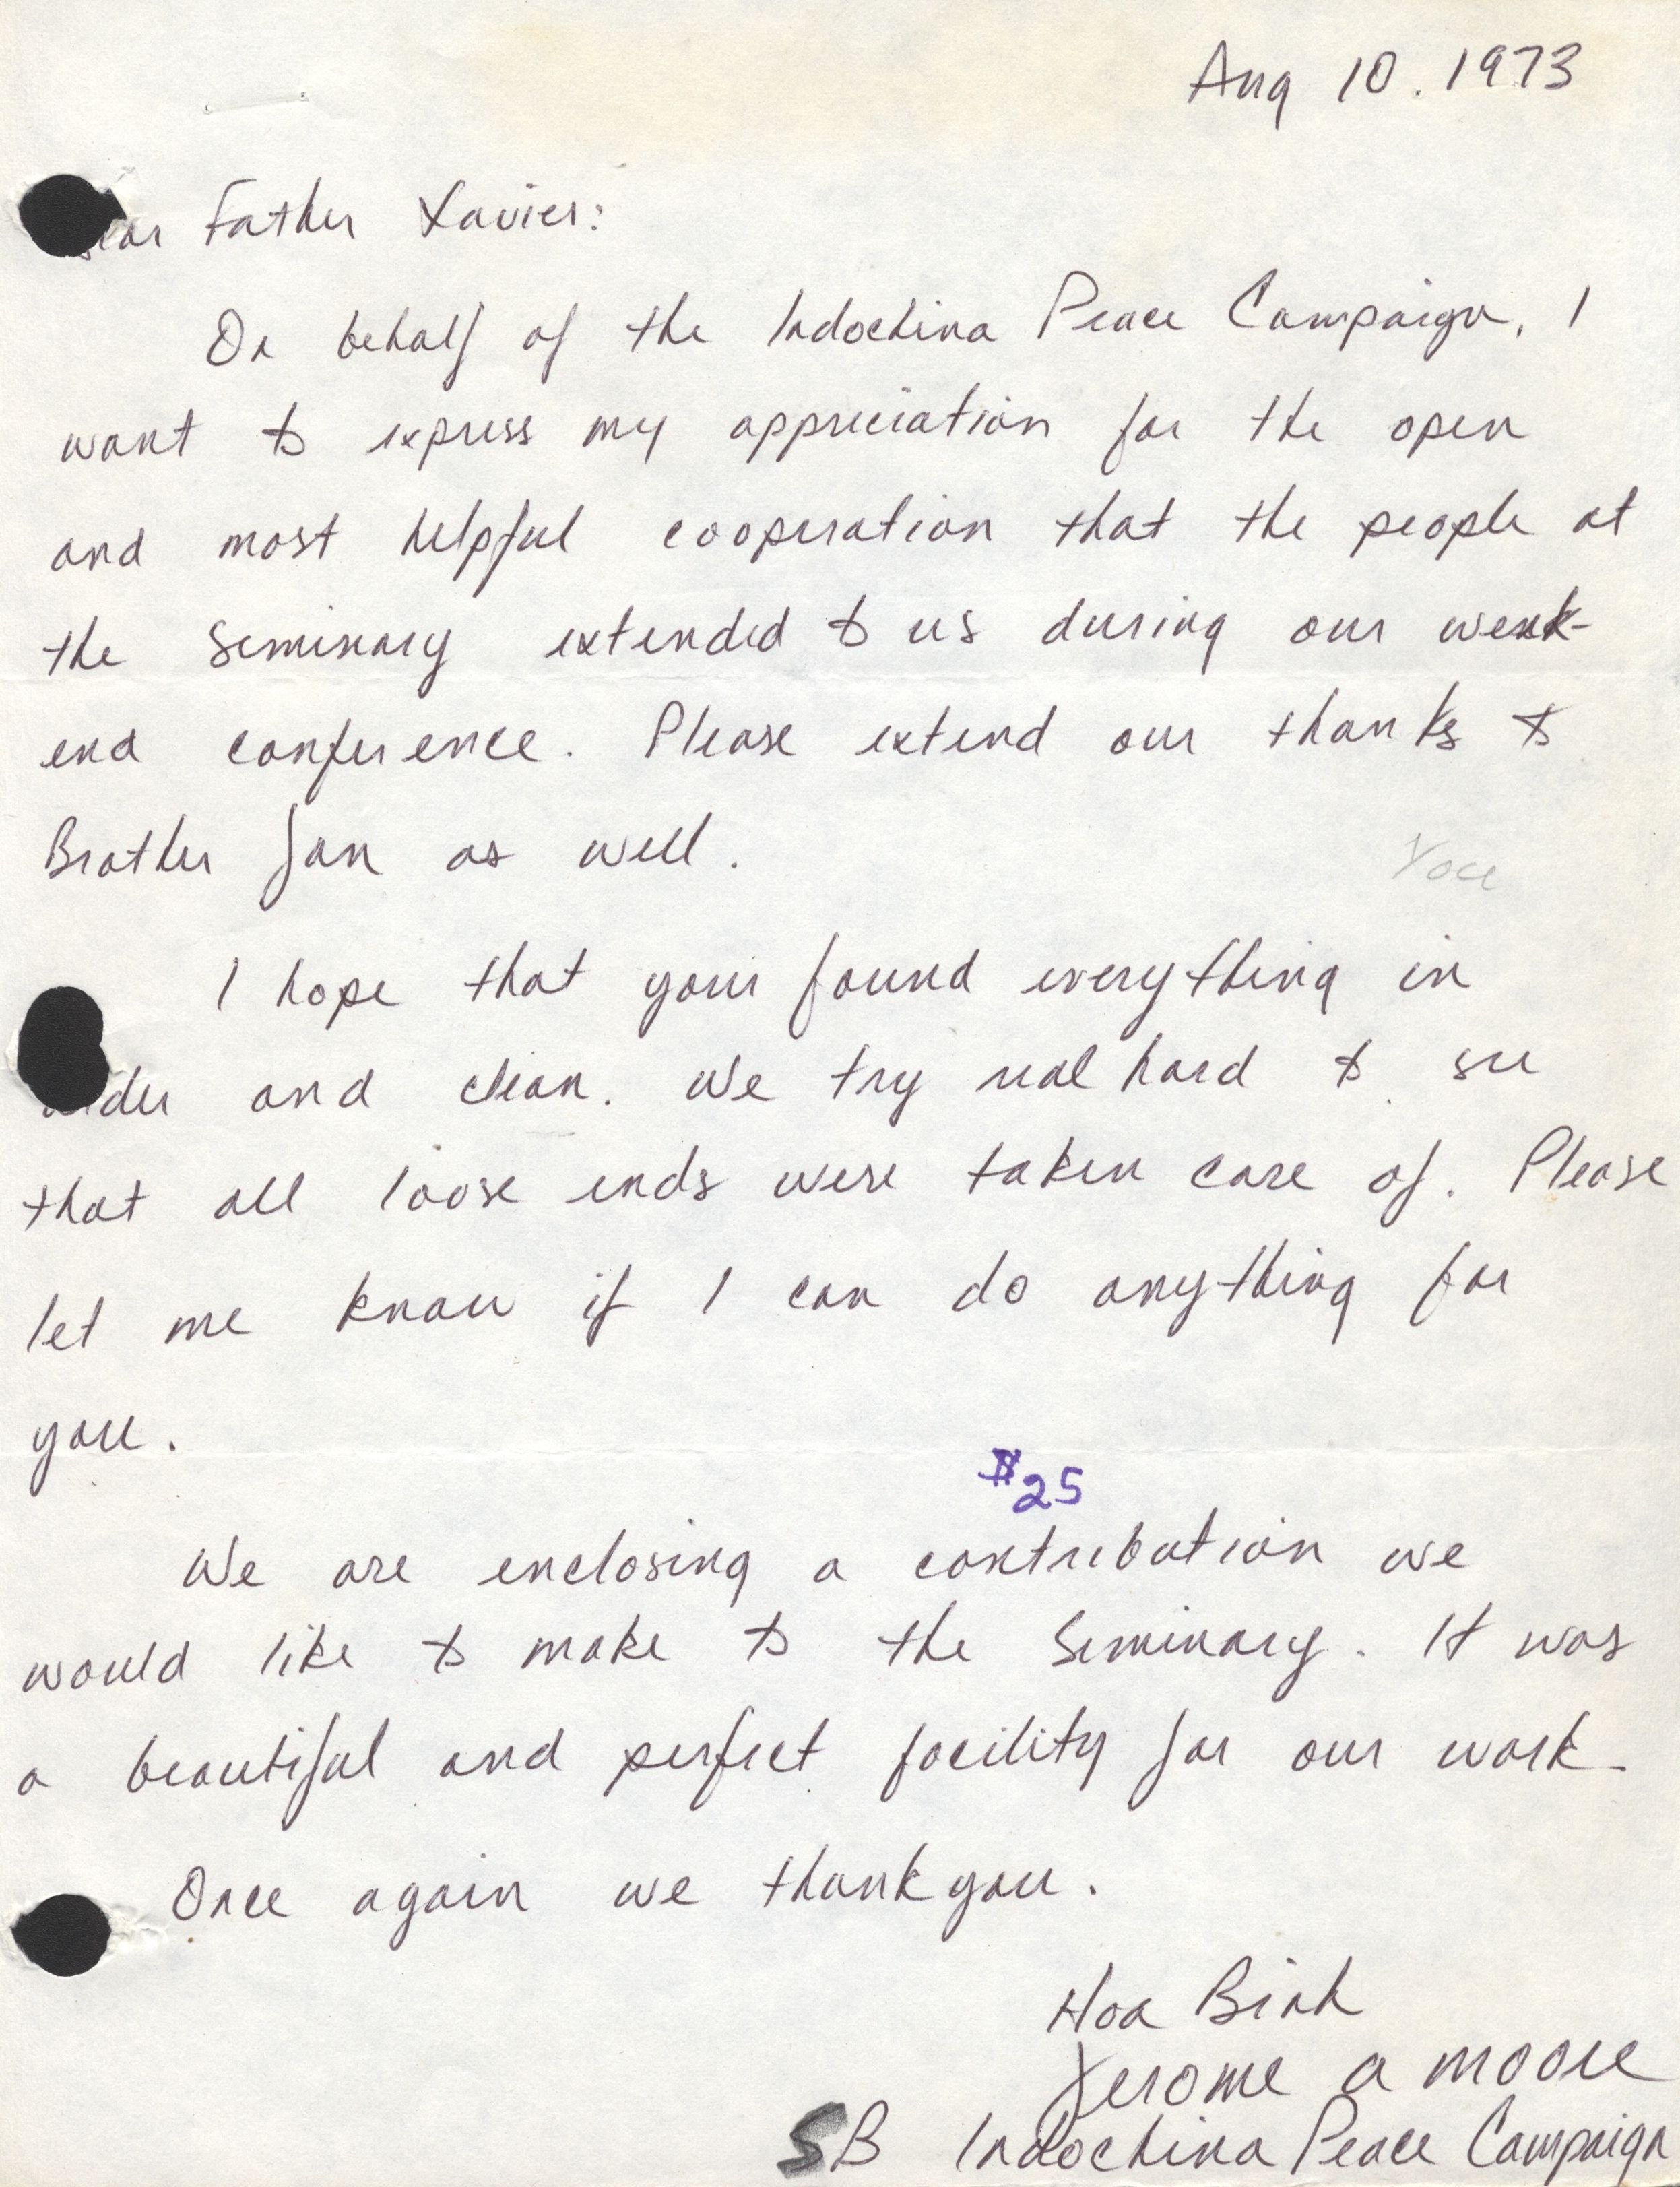 Aug 10. 1973
Dear Father Xavier:
On behalf of the Indochina Peace Campaign, I
want to express my appreciation for the open
and most helpful cooperation that the people at
the Seminary extended to us during our week-
end conference. Please extend our thanks to
Brother Jan as well.
You
I hope that your found everything in
order and clean. We try real hard to see
that all loose ends were taken care of. Please
let me know if I can do anything for
you.
$25
We are enclosing a contribution we
would like to make to the Seminary. It was
a beautiful and perfect facility for our work.
Once again we thank you.
Hoa Binh
Jerome a moore
SB Indochina Peace Campaign